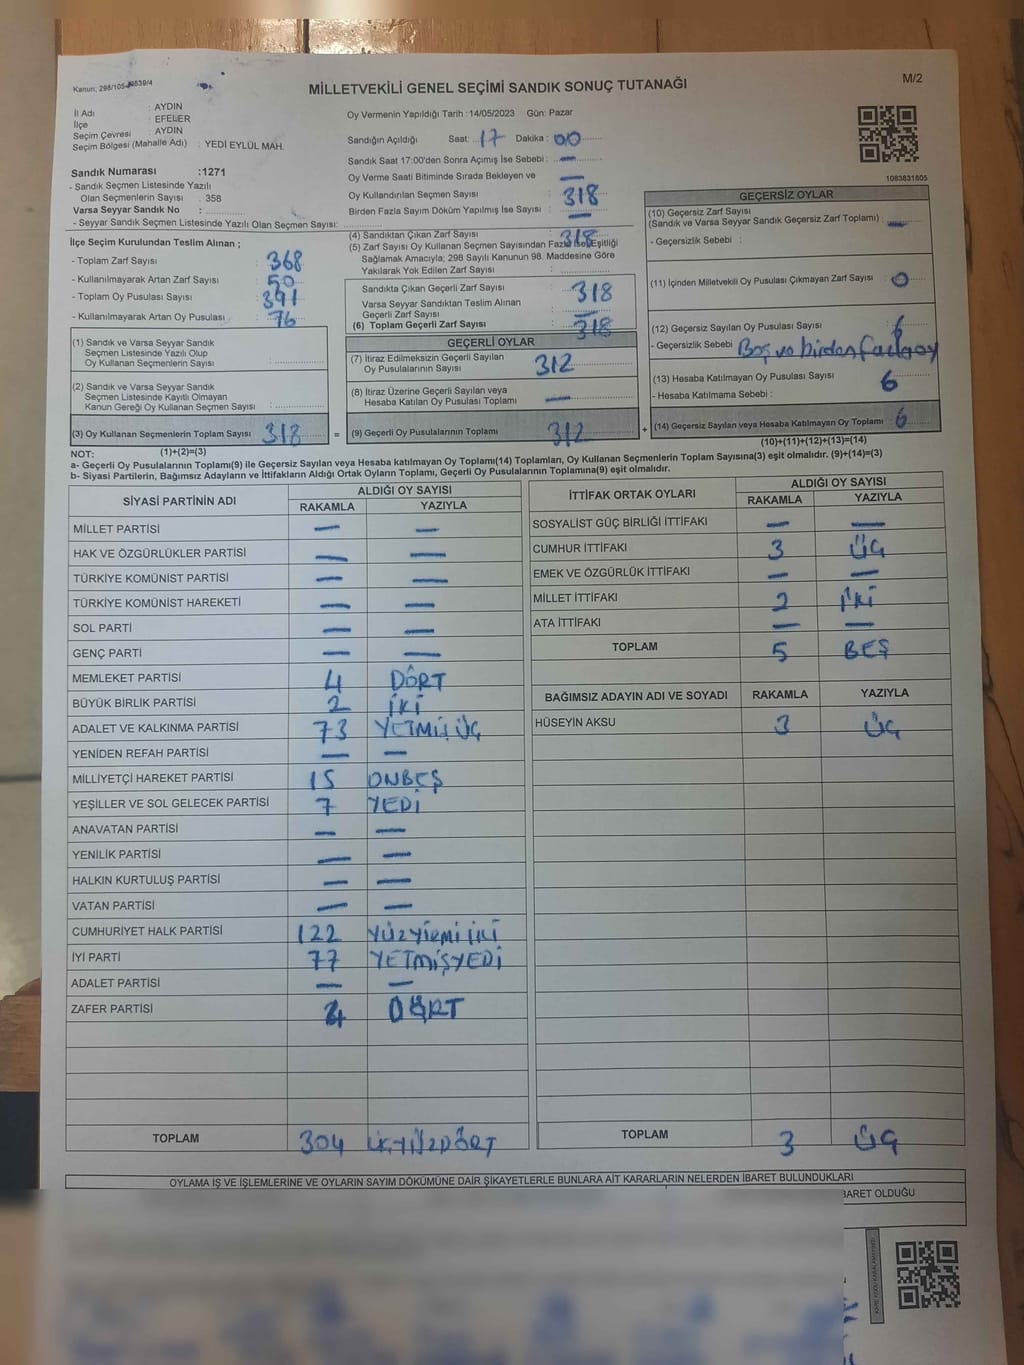 Kanun; 298/105
MİLLETVEKİLİ GENEL SEÇİMİ SANDIK SONUÇ TUTANAĞI
M/2
İl Adı : AYDIN
İlçe : EFELER
Seçim Çevresi : AYDIN
Seçim Bölgesi (Mahalle Adı) : YEDİ EYLÜL MAH.
Sandık Numarası :1271
- Sandık Seçmen Listesinde Yazılı
Olan Seçmenlerin Sayısı : 358
Varsa Seyyar Sandık No :
- Seyyar Sandık Seçmen Listesinde Yazılı Olan Seçmen Sayısı:
Oy Vermenin Yapıldığı Tarih :14/05/2023 Gün: Pazar
Sandığın Açıldığı Saat: 17 Dakika : 00
Sandık Saat 17:00'den Sonra Açımış İse Sebebi : —
Oy Verme Saati Bitiminde Sırada Bekleyen ve —
Oy Kullandırılan Seçmen Sayısı 318
Birden Fazla Sayım Döküm Yapılmış İse Sayısı —
1083831805
İlçe Seçim Kurulundan Teslim Alınan ;
- Toplam Zarf Sayısı 368
- Kullanılmayarak Artan Zarf Sayısı 50
- Toplam Oy Pusulası Sayısı 391
- Kullanılmayarak Artan Oy Pusulası 76
(1) Sandık ve Varsa Seyyar Sandık
Seçmen Listesinde Yazılı Olup
Oy Kullanan Seçmenlerin Sayısı
(2) Sandık ve Varsa Seyyar Sandık
Seçmen Listesinde Kayıtlı Olmayan
Kanun Gereği Oy Kullanan Seçmen Sayısı
(3) Oy Kullanan Seçmenlerin Toplam Sayısı 318
(1)+(2)=(3)
(4) Sandıktan Çıkan Zarf Sayısı 318
(5) Zarf Sayısı Oy Kullanan Seçmen Sayısından Fazla İse, Eşitliği
Sağlamak Amacıyla; 298 Sayılı Kanunun 98. Maddesine Göre
Yakılarak Yok Edilen Zarf Sayısı
Sandıkta Çıkan Geçerli Zarf Sayısı 318
Varsa Seyyar Sandıktan Teslim Alınan
Geçerli Zarf Sayısı —
(6) Toplam Geçerli Zarf Sayısı 318
GEÇERLİ OYLAR
(7) İtiraz Edilmeksizin Geçerli Sayılan
Oy Pusulalarının Sayısı 312
(8) İtiraz Üzerine Geçerli Sayılan veya
Hesaba Katılan Oy Pusulası Toplamı —
= (9) Geçerli Oy Pusulalarının Toplamı 312
GEÇERSİZ OYLAR
(10) Geçersiz Zarf Sayısı
(Sandık ve Varsa Seyyar Sandık Geçersiz Zarf Toplamı) : —
- Geçersizlik Sebebi :
(11) İçinden Milletvekili Oy Pusulası Çıkmayan Zarf Sayısı 0
(12) Geçersiz Sayılan Oy Pusulası Sayısı 6
- Geçersizlik Sebebi Boş ve birden fazla oy
(13) Hesaba Katılmayan Oy Pusulası Sayısı 6
- Hesaba Katılmama Sebebi :
+ (14) Geçersiz Sayılan veya Hesaba Katılmayan Oy Toplamı 6
(10)+(11)+(12)+(13)=(14)
NOT:
a- Geçerli Oy Pusulalarının Toplamı(9) ile Geçersiz Sayılan veya Hesaba katılmayan Oy Toplamı(14) Toplamları, Oy Kullanan Seçmenlerin Toplam Sayısına(3) eşit olmalıdır. (9)+(14)=(3)
b- Siyasi Partilerin, Bağımsız Adayların ve İttifakların Aldığı Ortak Oyların Toplamı, Geçerli Oy Pusulalarının Toplamına(9) eşit olmalıdır.
SİYASİ PARTİNİN ADI ALDIĞI OY SAYISI
RAKAMLA YAZIYLA
MİLLET PARTİSİ — —
HAK VE ÖZGÜRLÜKLER PARTİSİ — —
TÜRKİYE KOMÜNİST PARTİSİ — —
TÜRKİYE KOMÜNİST HAREKETİ — —
SOL PARTİ — —
GENÇ PARTİ — —
MEMLEKET PARTİSİ 4 DÖRT
BÜYÜK BİRLİK PARTİSİ 2 İKİ
ADALET VE KALKINMA PARTİSİ 73 YETMİŞ ÜÇ
YENİDEN REFAH PARTİSİ — —
MİLLİYETÇİ HAREKET PARTİSİ 15 ONBEŞ
YEŞİLLER VE SOL GELECEK PARTİSİ 7 YEDİ
ANAVATAN PARTİSİ — —
YENİLİK PARTİSİ — —
HALKIN KURTULUŞ PARTİSİ — —
VATAN PARTİSİ — —
CUMHURİYET HALK PARTİSİ 122 YÜZYİRMİ İKİ
İYİ PARTİ 77 YETMİŞYEDİ
ADALET PARTİSİ — —
ZAFER PARTİSİ 4 DÖRT
TOPLAM 304 ÜÇYÜZDÖRT
İTTİFAK ORTAK OYLARI ALDIĞI OY SAYISI
RAKAMLA YAZIYLA
SOSYALİST GÜÇ BİRLİĞİ İTTİFAKI — —
CUMHUR İTTİFAKI 3 ÜÇ
EMEK VE ÖZGÜRLÜK İTTİFAKI — —
MİLLET İTTİFAKI 2 İKİ
ATA İTTİFAKI — —
TOPLAM 5 BEŞ
BAĞIMSIZ ADAYIN ADI VE SOYADI RAKAMLA YAZIYLA
HÜSEYİN AKSU 3 ÜÇ
TOPLAM 3 ÜÇ
OYLAMA İŞ VE İŞLEMLERİNE VE OYLARIN SAYIM DÖKÜMÜNE DAİR ŞİKAYETLERLE BUNLARA AİT KARARLARIN NELERDEN İBARET BULUNDUKLARI
BARET OLDUĞU